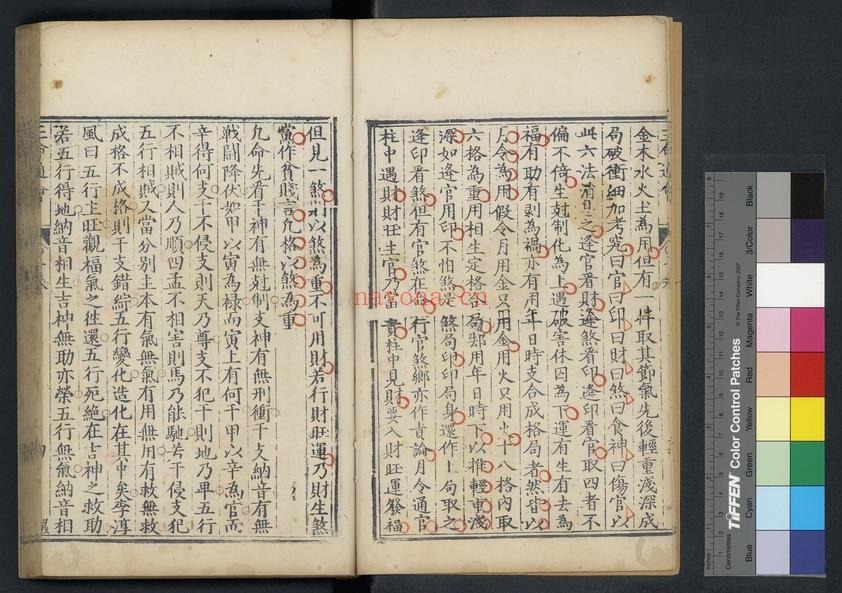 金木水火土為用但有一件取其節氣先後輕重淺深成
局破衝細加考究曰官曰印曰財曰煞曰食神曰傷官以
此六法消息之逢官看財逢煞看印逢印看官取四者不
偏不倚生尅制化為上遇破害休囚為下運有生有去為
福有助有剥為禍亦有用年日時支合成格局者然皆以
月令為用假令月用金只用金用火只用火十八格內取
六格為重用相生定格合局却用年日時下以推輕重淺
深如逢官用印不怕煞是煞局印印局身還作上局取之
逢印看煞但有官煞在 行官煞鄉亦作貴論月令通官
柱中遇財財旺生官乃富貴柱中見財要入財旺運發福
但見一煞則以煞為重不可用財若行財旺運乃財生煞
黨作貧賤言凡格以煞為重
凡命先看干神有無尅制支神有無刑衝干支納音有無
戰鬪降伏如甲以寅為禄而寅上有何干甲以辛為官而
辛得何支干不侵支則天乃尊支不犯干則地乃卑五行
不相賊則人乃順四孟不相害則馬乃能馳若干侵支犯
五行相賊又當分別主本有氣無氣有用無用有救無救
成格不成格則干支錯綜五行變化造化在其中矣李淳
風曰五行主旺觀福氣之徃還五行死絶在吉神之救助
若五行得地納音相生吉神無助亦榮五行無氣納音相
三命通會
Inches
Centimetres
TIFFEN Color Control Patches
© The Tiffen Company, 2007
Blue
Cyan
Green
Yellow
Red
Magenta
White
3/Color
Black
nayona.cn